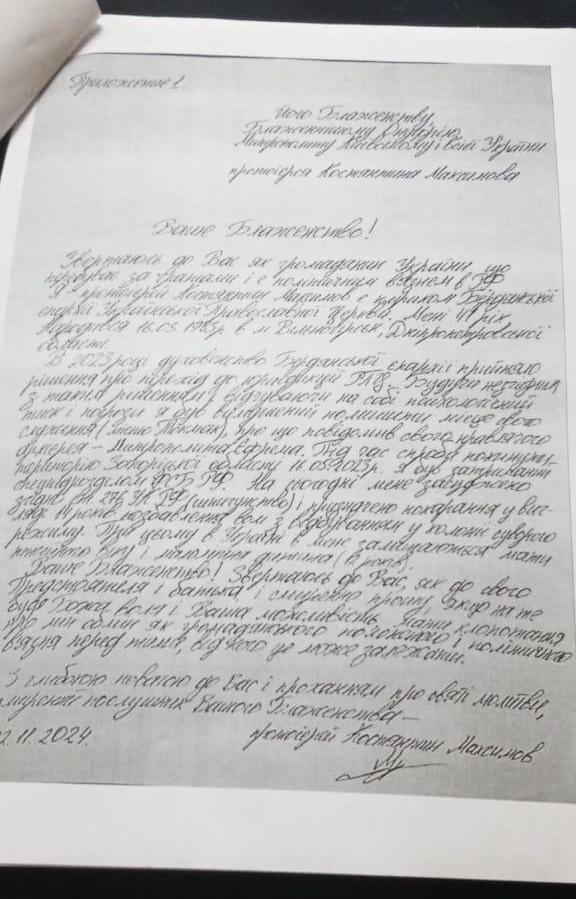 Приложение 1.
Його Блаженству
Блаженнішому Онуфрію
Митрополиту Київському і всієї України
протоієрея Костянтина Максимова
Ваше Блаженство!
Звертаюсь до Вас як громадянин України що
перебуває за ґратами і є політичним в'язнем в РФ
Я протоієрей Костянтин Максимов є кліриком Бердянської
єпархії Української Православної Церкви. Мені 41 рік
Народився 16.03.1983р в м Вільногірськ, Дніпропетровської
області.
В 2023 році духовенство Бердянської єпархії прийняло
рішення про перехід до юрисдикції РПЦ. Будучи незгідним
з таким рішенням і відчуваючи на собі психологічний
тиск і погрози я був вимушений полишити місце свого
служіння (місто Токмак), про що повідомив свого правлячого
архієрея – Митрополита Єфрема. Під час спроби покинути
територію Запорізької області 16.05.2023р. я був затриманий
спецпідрозділом ФСБ РФ. На сьогодні мене засуджено
згідно ст 276 УК РФ (шпигунство) і призначено покарання у виг-
ляді 14 років позбавлення волі з відбуванням у колонії суворого
режиму. При цьому в Україні в мене залишаються мати
похилого віку і малолітня дитина
Ваше Блаженство! Звертаюсь до Вас, як до свого
Предстоятеля і батька і смиренно прошу, якщо на те
буде Божа воля і Ваша можливість, мати клопотання
про мій обмін як громадянського полоненого і політичного
в'язня перед тими, від кого це може залежати.
З глибокою повагою до Вас і проханням про святі молитви,
смиренний послушник Вашого Блаженства –
2.11.2024. протоієрей Костянтин Максимов